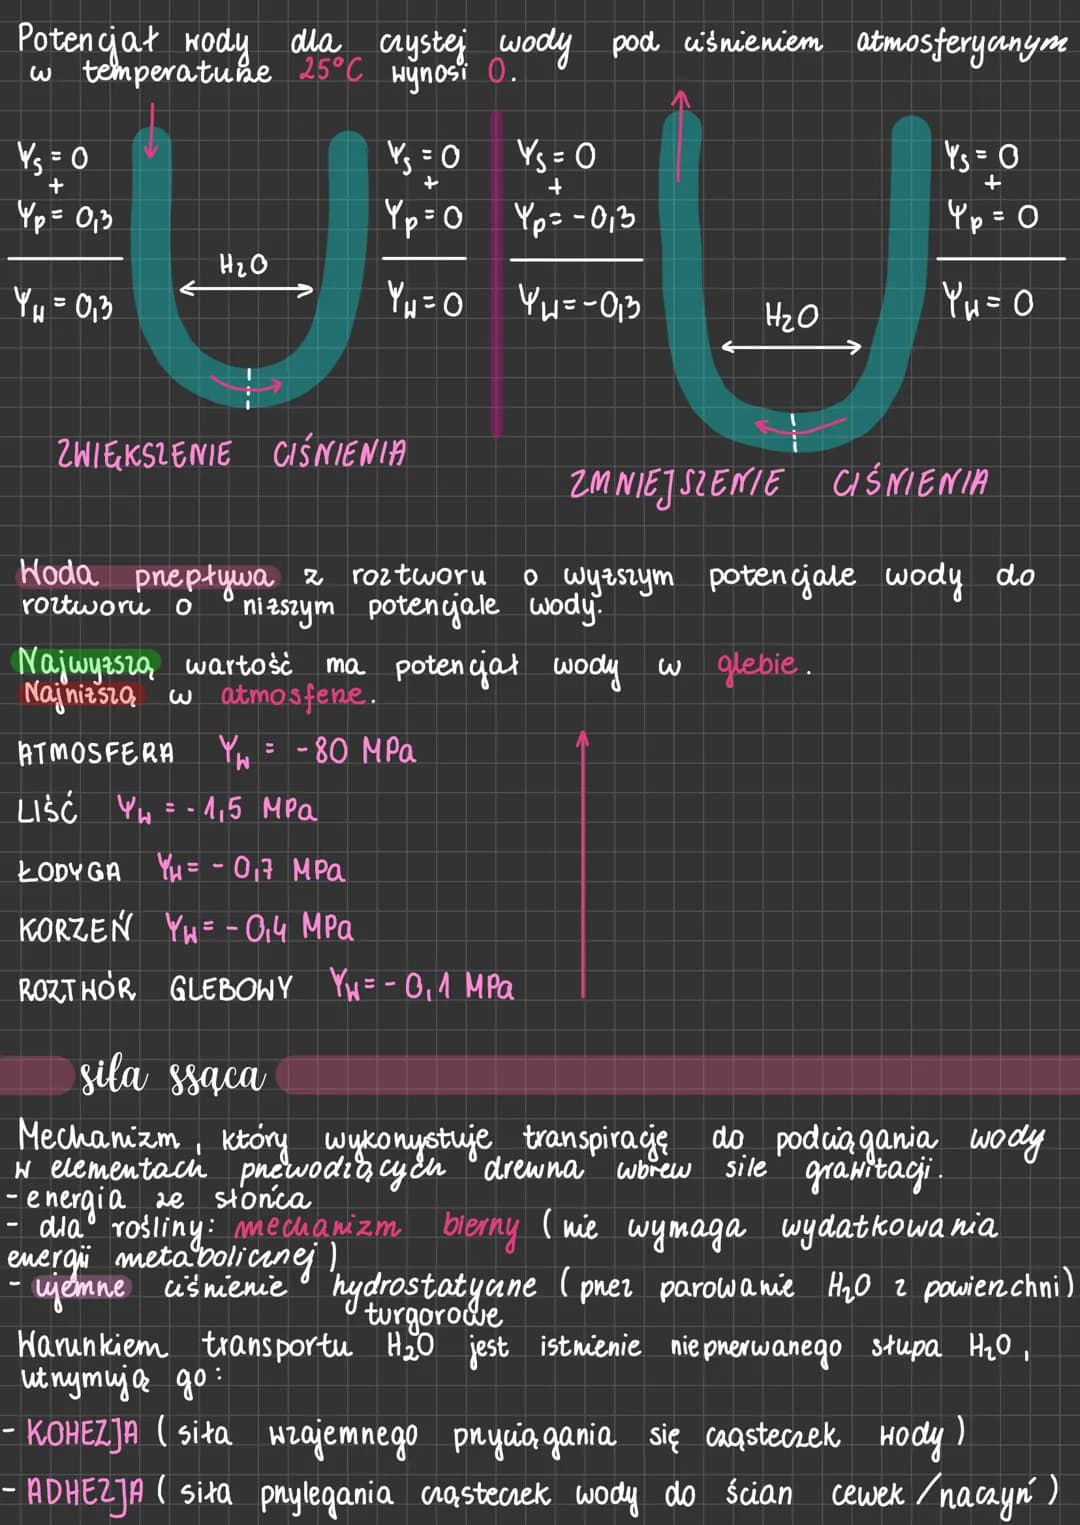 Potencjał wody dla czystej wody pod ciśnieniem atmosferycznym
w temperaturze 25°C wynosi 0.
Ψs = 0
+
Ψp = 0,3
Ψw = 0,3
H₂O
Ψs = 0
+
Ψp = 0
Ψw = 0
ZWIĘKSZENIE CIŚNIENIA
Ψs = 0
+
Ψp = -0,3
Ψw = -0,3
H₂O
Ψs = 0
+
Ψp = 0
Ψw = 0
ZMNIEJSZENIE CIŚNIENIA
Woda przepływa z roztworu o wyższym potencjale wody do
roztworu o niższym potencjale wody.
Najwyższą wartość ma potencjał wody w glebie.
Najniższą w atmosferze.
ATMOSFERA Ψw = -80 MPa
LIŚĆ Ψw = -1,5 MPa
ŁODYGA Ψw = -0,7 MPa
KORZEŃ Ψw = -0,4 MPa
ROZTWÓR GLEBOWY Ψw = -0,1 MPa
siła ssąca
Mechanizm, który wykorzystuje transpirację do podciągania wody
w elementach przewodzących drewna wbrew sile grawitacji.
- energia ze słońca
- dla rośliny: mechanizm bierny (nie wymaga wydatkowania
energii metabolicznej)
- ujemne ciśnienie hydrostatyczne (przez parowanie H₂O z powierzchni)
turgorowe
Warunkiem transportu H₂O jest istnienie nieprzerwanego słupa H₂O,
utrzymują go:
- KOHEZJA (siła wzajemnego przyciągania się cząsteczek wody)
- ADHEZJA (siła przylegania cząsteczek wody do ścian cewek/naczyń)